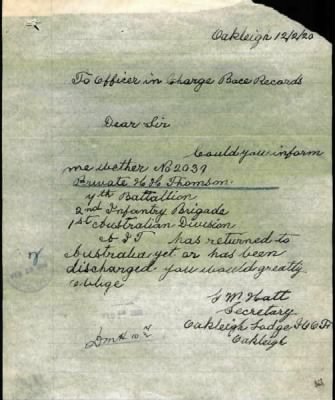 Oakleigh 12/2/20
To Officer in Charge Bace Records
Dear Sir
Could you inform
me wether No 2037
Private H H Thomson
7th Battallion
2nd Infantry Brigade
1st Australian Division
A I F has returned to
Australia yet or has been
discharged you would greatly
oblige
G M Hatt
Secretary
Oakleigh Lodge
Oakleigh